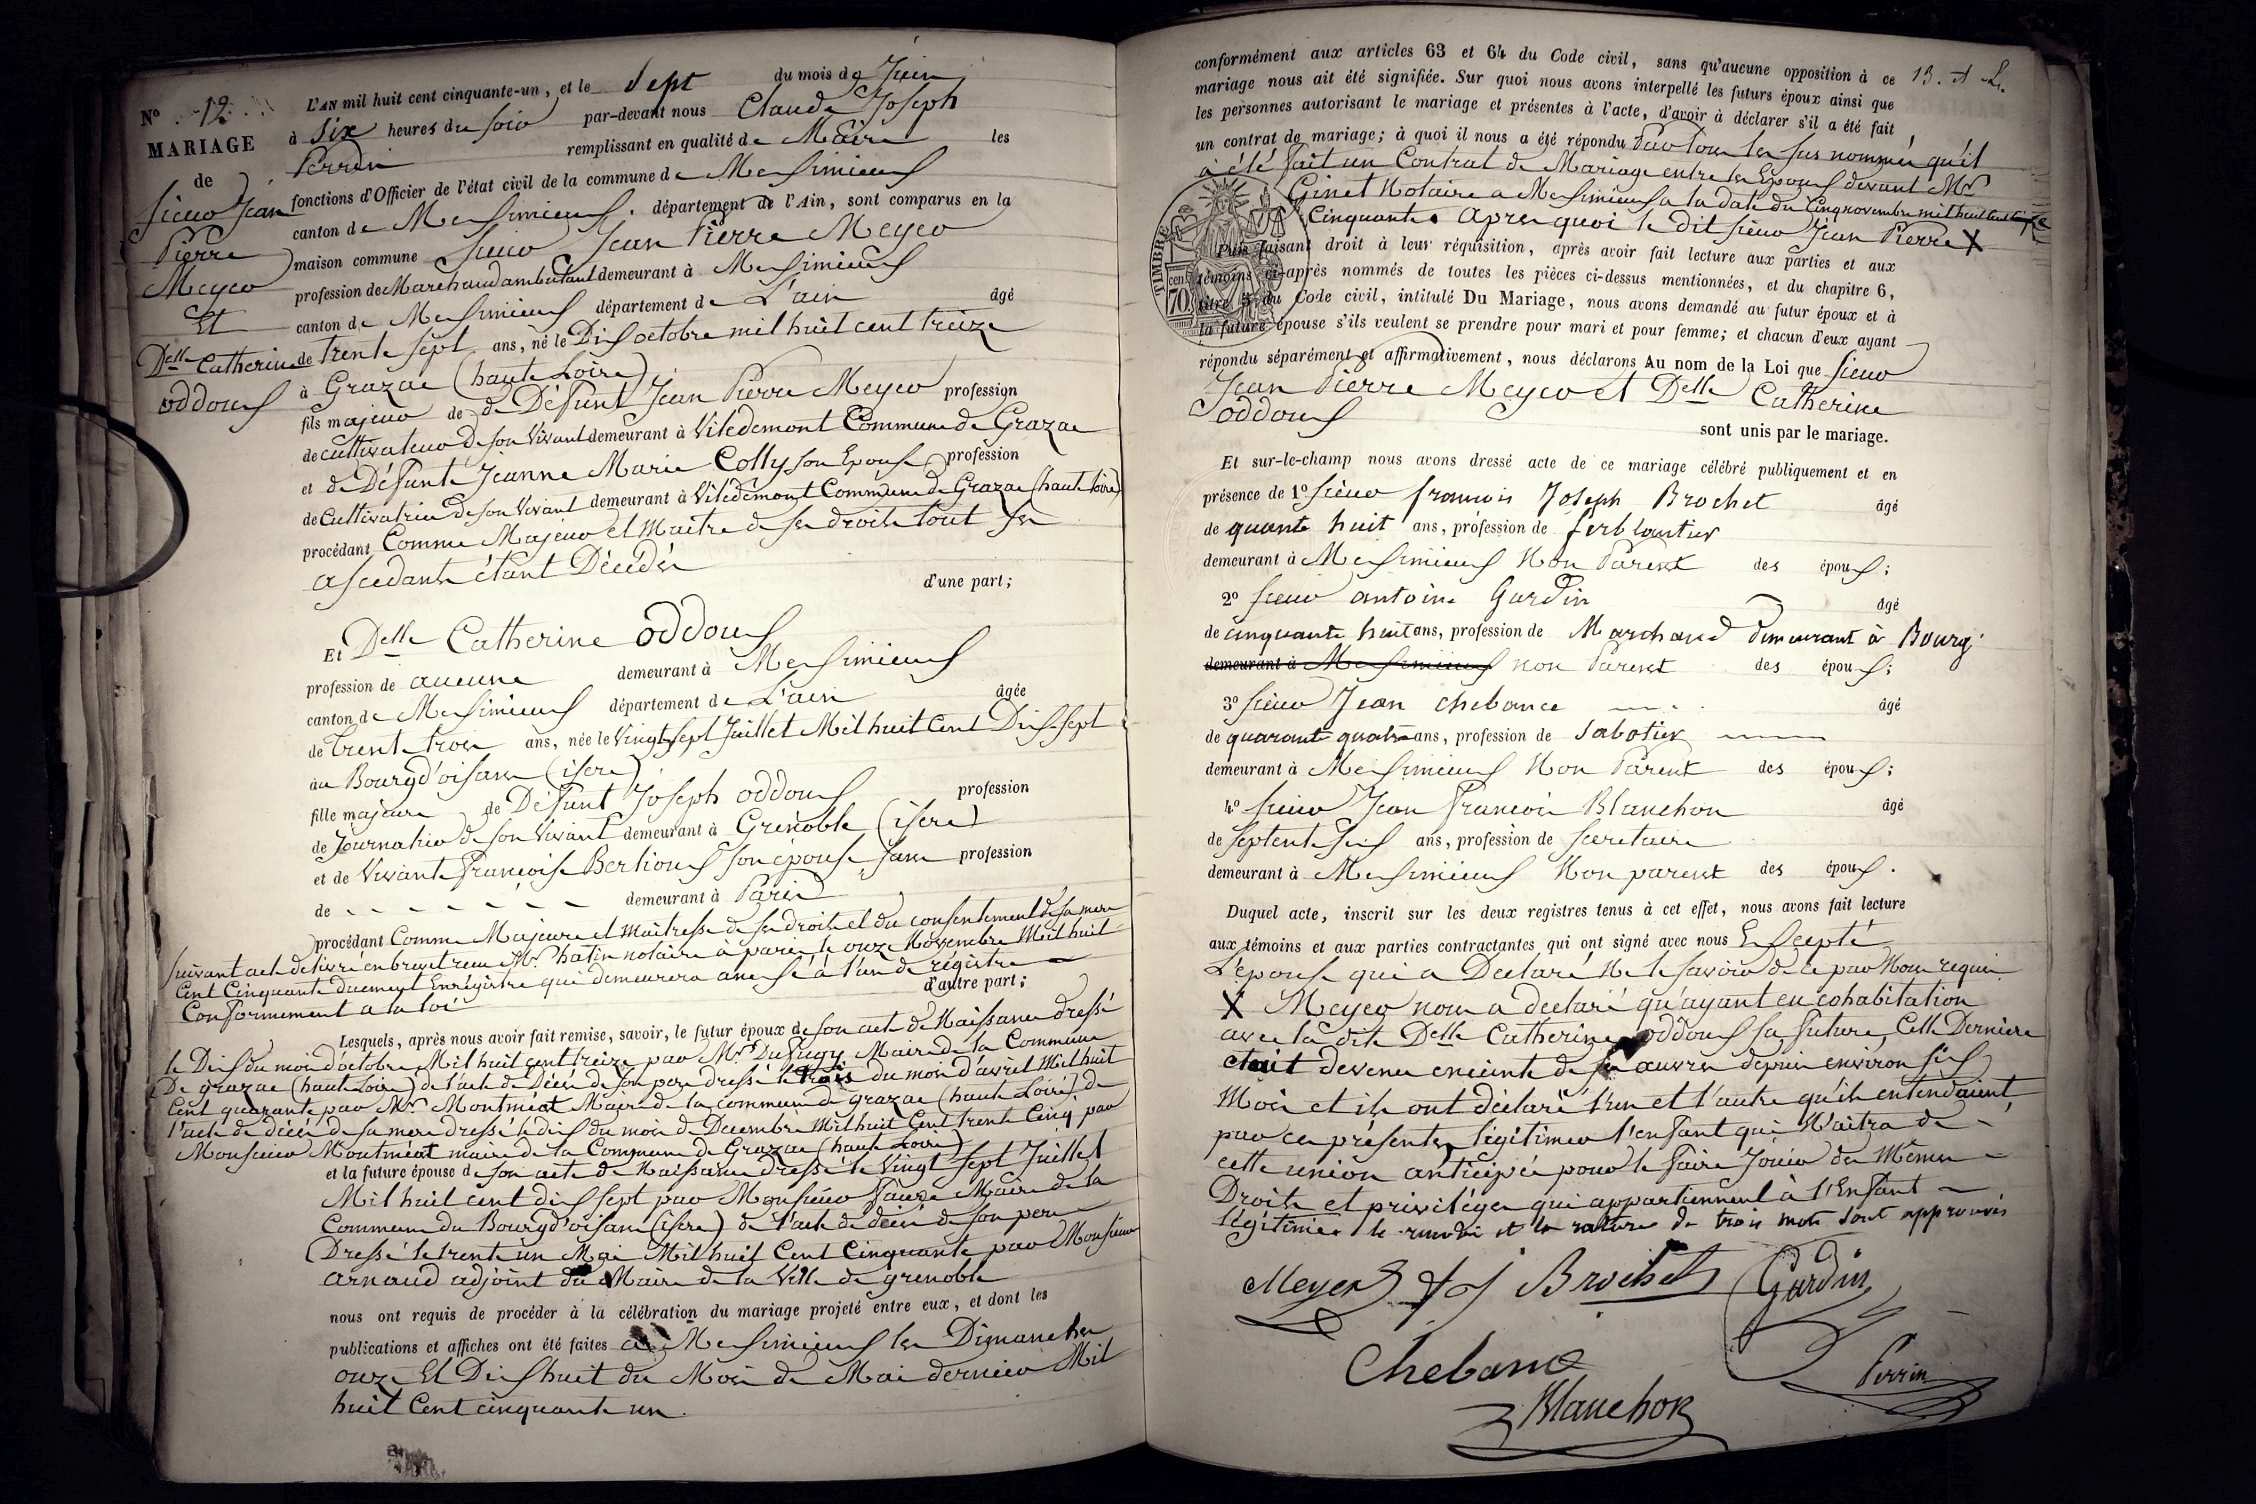 N° 12
MARIAGE
de
Sieur Jean
Pierre
Meyer
Et
Delle Catherine
oddoux
L'AN mil huit cent cinquante-un, et le Sept du mois de Juin
à Six heures du soir par-devant nous Claude Joseph
Perrin remplissant en qualité de Maire les
fonctions d'Officier de l'état civil de la commune de Meximieux
canton de Meximieux, département de l'Ain, sont comparus en la
maison commune Sieur Jean Pierre Meyer
profession de Marchand ambulant demeurant à Meximieux
canton de Meximieux département de L'ain âgé
de trente sept ans, né le Dix octobre mil huit cent treize
à Grazac (haute Loire)
fils majeur de de Défunt Jean Pierre Meyer profession
de cultivateur de son Vivant demeurant à Viledemont Commune de Grazac
et de Défunte Jeanne Marie Colly son Epouse profession
de Cultivatrice de son Vivant demeurant à Viledemont Commune de Grazac (haute loire)
procédant Comme Majeur et Maître de ses droits tout ses
ascedants étant Décédés
d'une part;
Et Delle Catherine oddoux
profession de aucune demeurant à Meximieux
canton de Meximieux département de L'ain âgée
de trente trois ans, née le Vingt sept Juillet Mil huit Cent Dix sept
au Bourg d'oisans (isere)
fille majeure de Défunt Joseph oddoux profession
de Journalier de son Vivant demeurant à Grenoble (isere)
et de Vivante Françoise Berlioux son épouse sans profession
de - - - - - - - demeurant à Paris
procédant Comme Majeure et maîtresse de ses droits et du consentement de sa mere
suivant acte delivré en brevet reçu Mr. Chatin notaire à paris le onze Novembre Mil huit
Cent Cinquante duement Enregistre qui demeurera anexé à l'un de registre
d'autre part;
Conformement a la loi
Lesquels, après nous avoir fait remise, savoir, le futur époux de son acte de Naissance dressé
le Dix du mois d'octobre Mil huit cent treize par Mr. Dufugy Maire de la Commune
De grazac (haute Loire) de l'acte de Décès de son pere dressé le trois du mois d'avril Mil huit
Cent quarante par Mr. Montméat Maire de la commune de grazac (haute Loire) de
l'acte de décès de sa mere dressé le dix du mois de Decembre Mil huit Cent trente Cinq par
Monsieur Montméat maire de la Commune de Grazac (haute Loire)
et la future épouse de son acte de Naissance dressé le Vingt sept Juillet
Mil huit cent dix sept par Monsieur Faure Maire de la
Commune du Bourg d'oisans (isere) de l'acte de décès de son pere
Dressé le trente un Mai Mil huit Cent Cinquante par Monsieur
arnaud adjoint du Maire de la Ville de grenoble
nous ont requis de procéder à la célébration du mariage projeté entre eux, et dont les
publications et affiches ont été faites a Meximieux les Dimanches
onze Et Dix huit du Mois de Mai dernier Mil
huit Cent cinquante un.
13.
conformément aux articles 63 et 64 du Code civil, sans qu'aucune opposition à ce
mariage nous ait été signifiée. Sur quoi nous avons interpellé les futurs époux ainsi que
les personnes autorisant le mariage et présentes à l'acte, d'avoir à déclarer s'il a été fait
un contrat de mariage; à quoi il nous a été répondu Par tous les sus nommés qu'il
a été fait un Contrat de Mariage entre les Epoux devant Mr
Ginet Notaire a Meximieux a la date du Cinq novembre mil huit cent
Cinquante. Apres quoi le dit sieur Jean Pierre X
TIMBRE
70 cen
Puis faisant droit à leur réquisition, après avoir fait lecture aux parties et aux
témoins ci-après nommés de toutes les pièces ci-dessus mentionnées, et du chapitre 6,
titre 5 du Code civil, intitulé Du Mariage, nous avons demandé au futur époux et à
la future épouse s'ils veulent se prendre pour mari et pour femme; et chacun d'eux ayant
répondu séparément et affirmativement, nous déclarons Au nom de la Loi que sieur
Jean Pierre Meyer et Delle Catherine
oddoux
sont unis par le mariage.
Et sur-le-champ nous avons dressé acte de ce mariage célébré publiquement et en
présence de 1° Sieur françois Joseph Brochet âgé
de quante huit ans, profession de ferblantier
demeurant à Meximieux Non Parent des époux;
2° Sieur antoine Gurdin âgé
de cinquante huit ans, profession de Marchand demeurant à Bourg
demeurant à Meximieux non Parent des époux;
3° Sieur Jean chebance âgé
de quarante quatre ans, profession de Sabotier
demeurant à Meximieux Non Parent des époux;
4° Sieur Jean François Blanchon âgé
de Septente six ans, profession de Secretaire
demeurant à Meximieux Non parent des époux.
Duquel acte, inscrit sur les deux registres tenus à cet effet, nous avons fait lecture
aux témoins et aux parties contractantes qui ont signé avec nous Excepté
L'épouse qui a Declaré Ne le savoir de ce par Nous requis
X Meyer nous a declaré qu'ayant eu cohabitation
avec la dite Delle Catherine oddoux sa future, Cette Derniere
etait devenu enceinte de ses œuvres depuis environ six
Mois et ils ont déclaré l'un et l'autre qu'ils entendaient
par ces présentes légitimer l'enfant qui Naitra de
cette union anticipée pour le faire Jouir des Mêmes
Droits et privilèges qui appartiennent à l'Enfant
légitime. le renvoi et la rature de trois mots sont approuvés
Meyer f J Brochet Gurdin
Chebance
Blanchon
Perrin